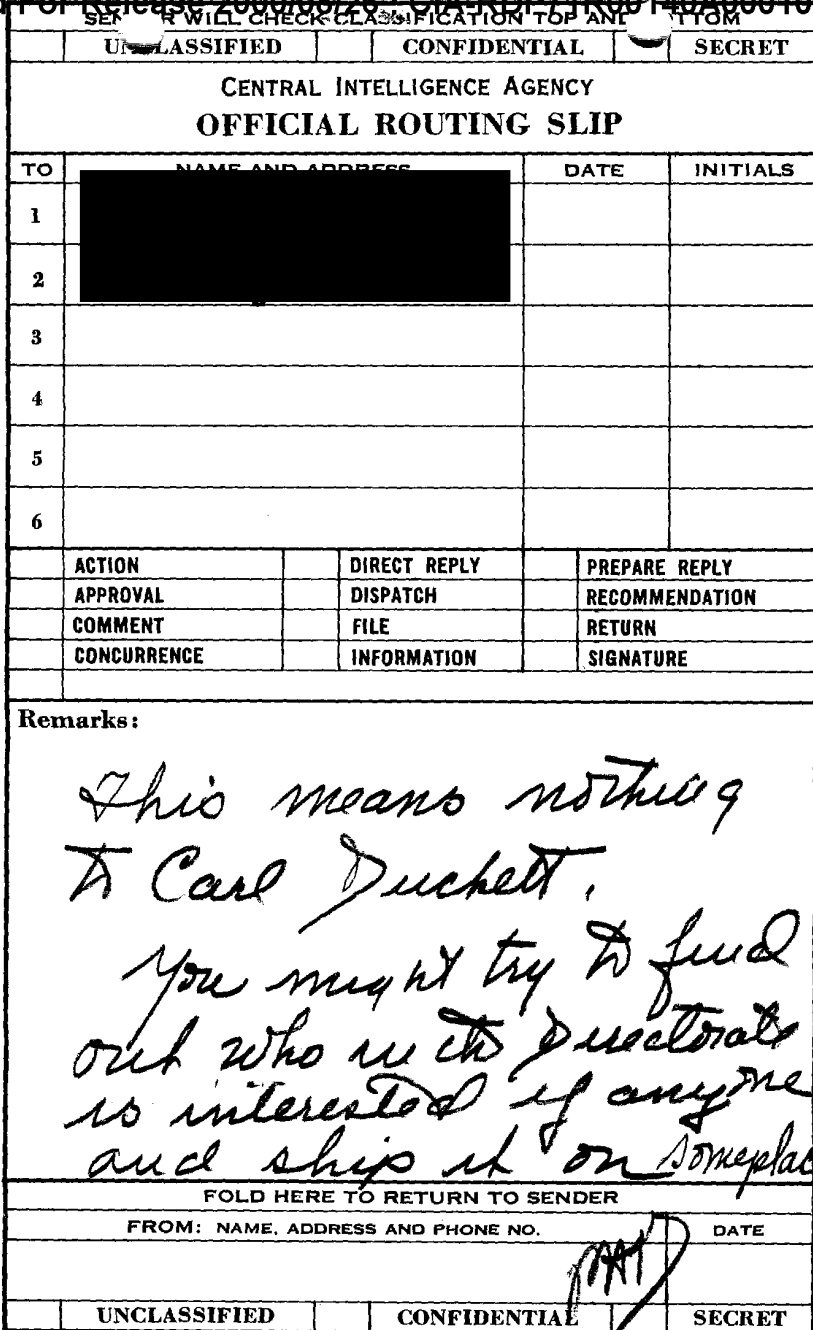 SENDER WILL CHECK CLASSIFICATION TOP AND BOTTOM
UNCLASSIFIED CONFIDENTIAL SECRET
CENTRAL INTELLIGENCE AGENCY
OFFICIAL ROUTING SLIP
TO NAME AND ADDRESS DATE INITIALS
1
2
3
4
5
6
ACTION DIRECT REPLY PREPARE REPLY
APPROVAL DISPATCH RECOMMENDATION
COMMENT FILE RETURN
CONCURRENCE INFORMATION SIGNATURE
Remarks:
This means nothing
to Carl Duckett.
You might try to find
out who in the Directorate
is interested if anyone
and ship it on someplac
FOLD HERE TO RETURN TO SENDER
FROM: NAME, ADDRESS AND PHONE NO. DATE
UNCLASSIFIED CONFIDENTIAL SECRET